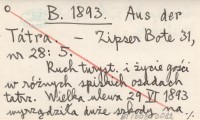 B. 1893. Aus der
Tátra. — Zipser Bote 31,
nr 28: 5.
Ruch turyst. i życie gości
w różnych spiskich osadach
tatrz. Wielka ulewa 29 VI 1893
wyrządziła duże szkody na